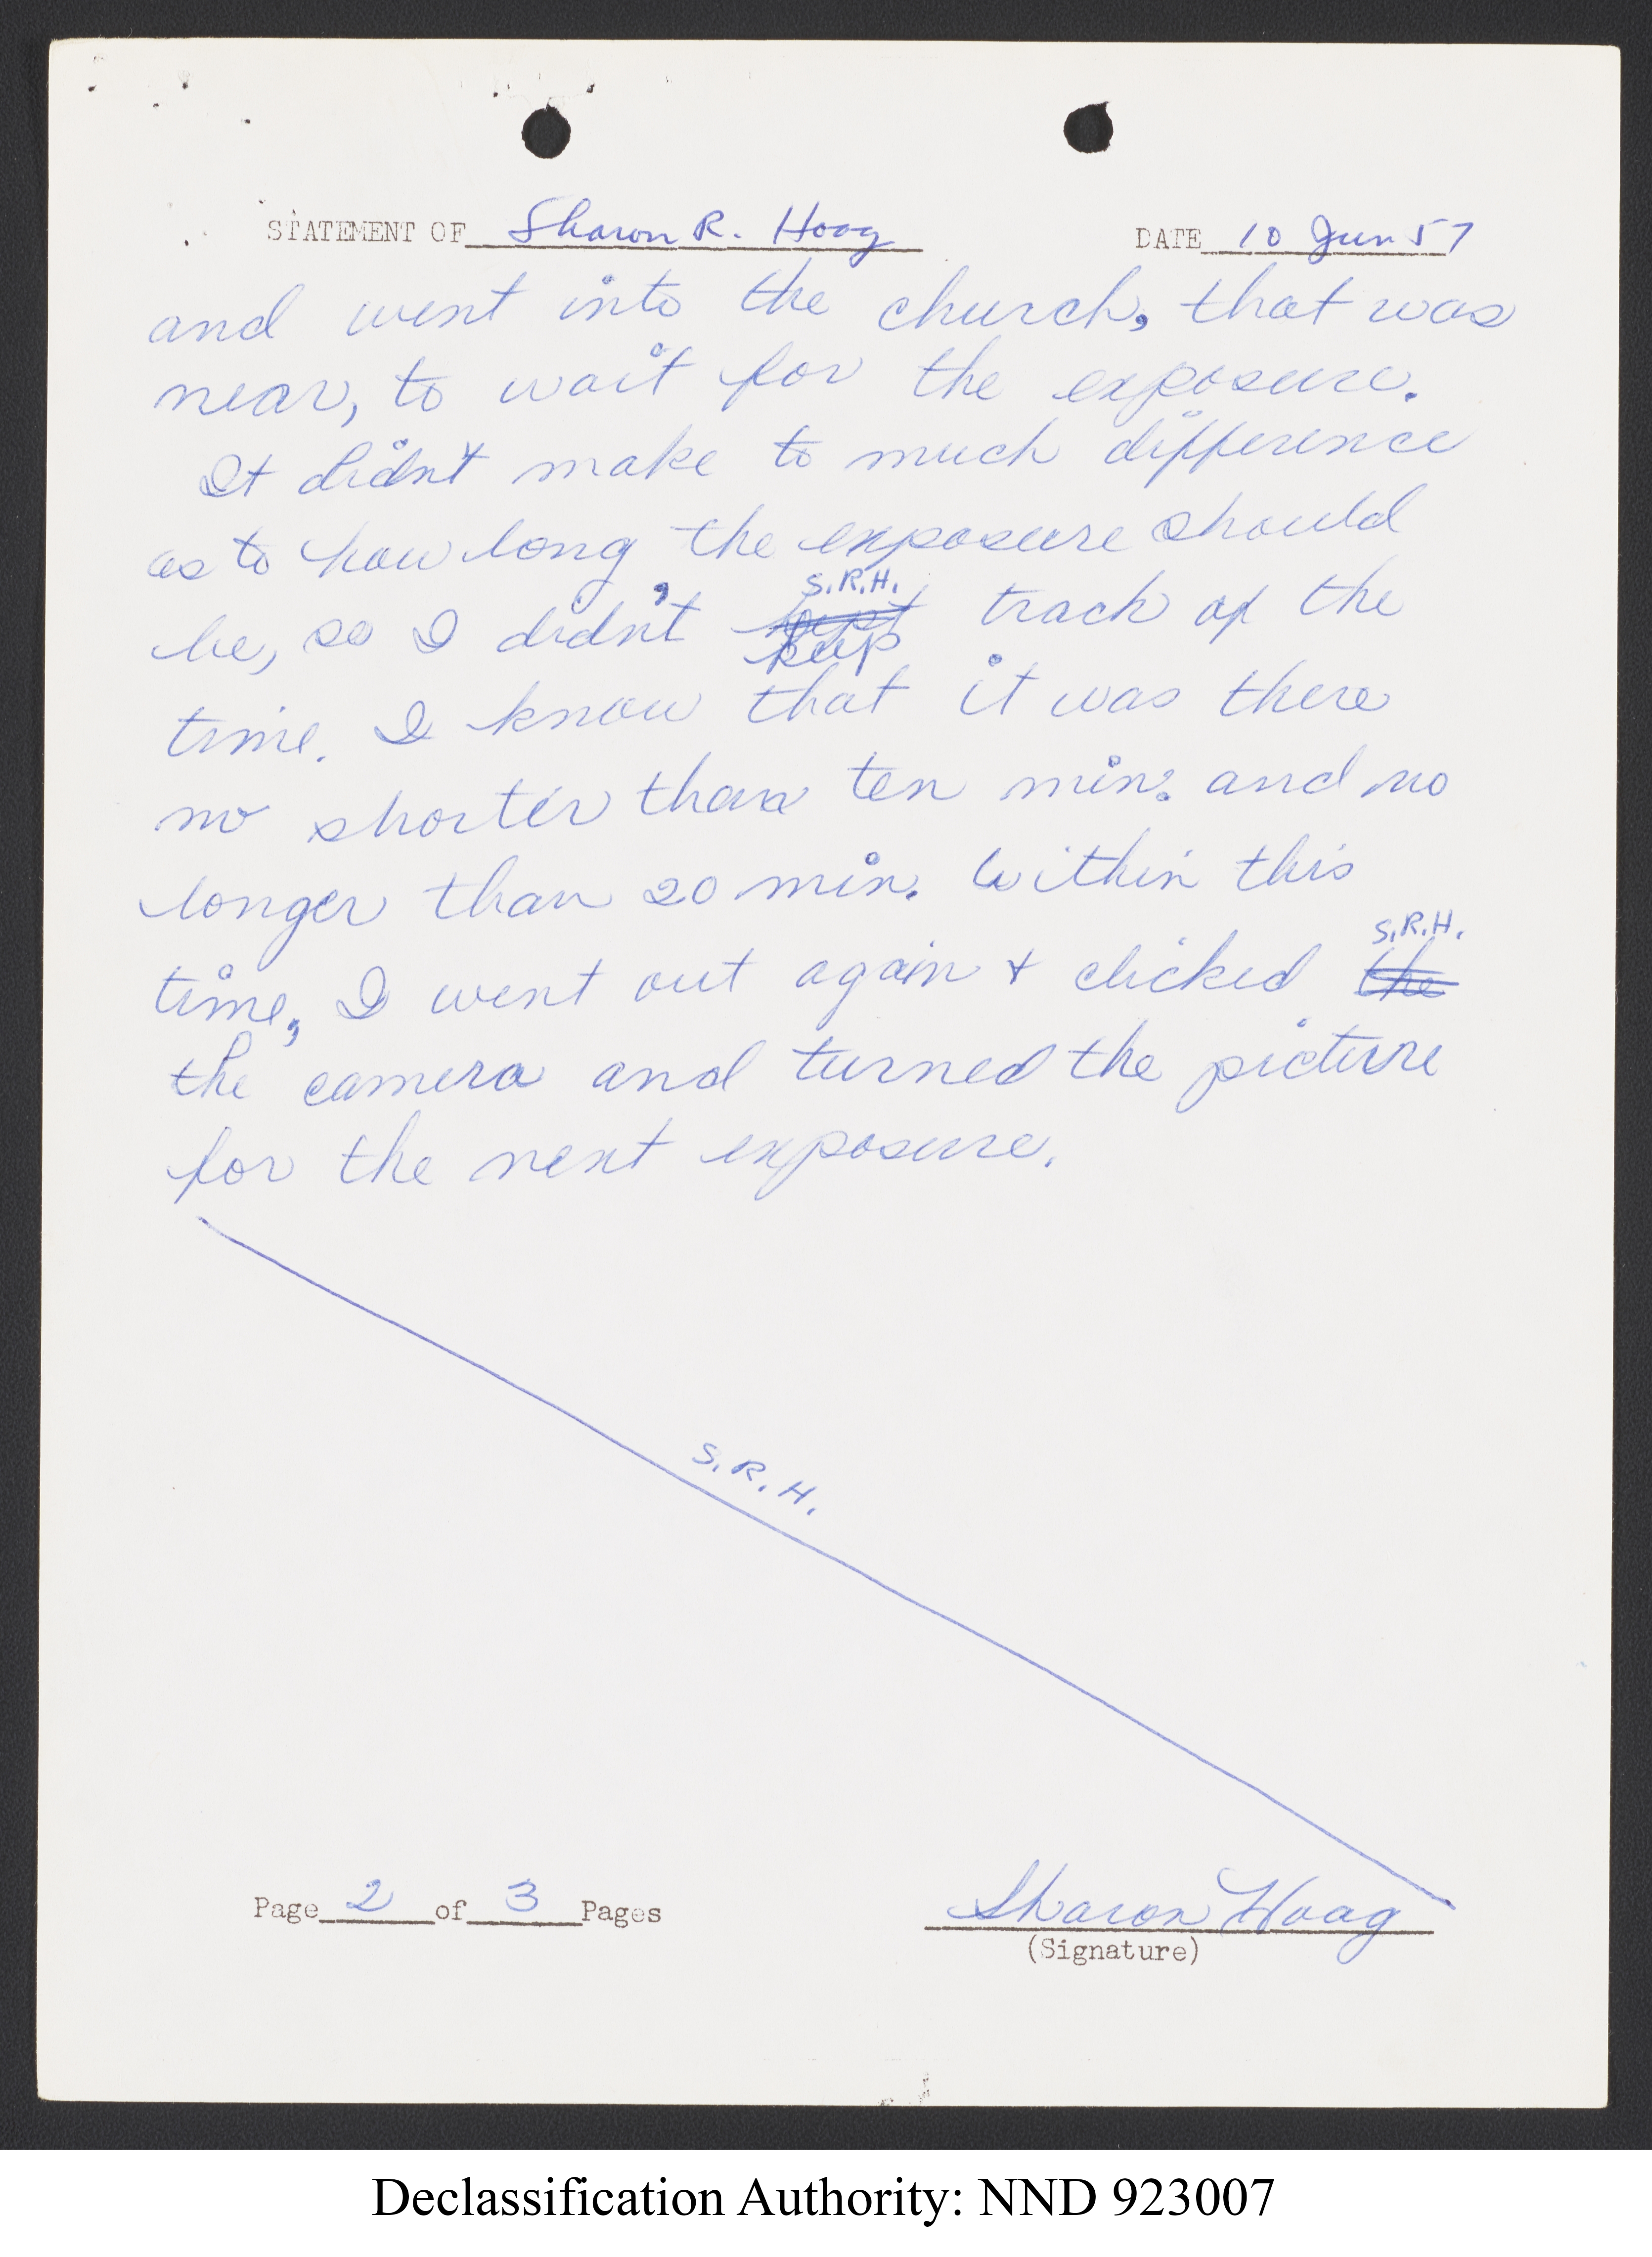 STATEMENT OF Sharon R. Hoag DATE 10 Jun 57
and went into the church, that was
near, to wait for the exposure.
It didn't make to much difference
as to how long the exposure should
S.R.H.
be, so I didn't kept track of the
keep
time. I know that it was there
no shorter than ten min. and no
longer than 20 min. Within this
S.R.H.
time, I went out again + clicked the
the camera and turned the picture
for the next exposure.
S.R.H.
Page 2 of 3 Pages Sharon Hoag
(Signature)
Declassification Authority: NND 923007